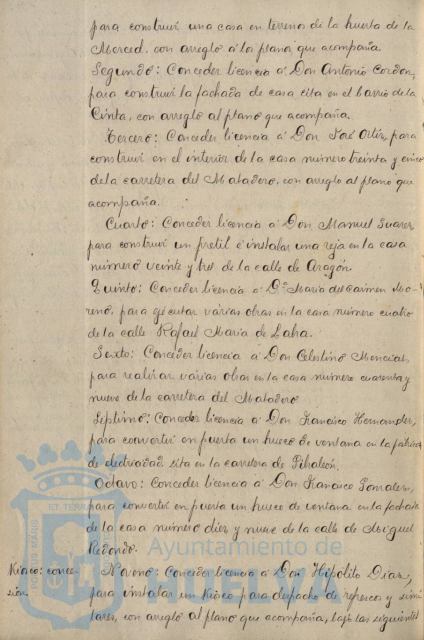 para construir una casa en terrenos de la huerta de la
Merced, con arreglo á los planos que acompaña.
Segundo: Conceder licencia á Don Antonio Cordon,
para construir la fachada de casa sita en el barrio de la
Cinta, con arreglo al plano que acompaña.
Tercero: Conceder licencia á Don José Ortiz, para
construir en el interior de la casa número treinta y cinco
de la carretera del Matadero, con arreglo al plano que
acompaña.
Cuarto: Conceder licencia á Don Manuel Suarez
para construir un pretil é instalar una reja en la casa
número veinte y tres de la calle de Aragón.
Quinto: Conceder licencia á Dª Maria del Carmen Mo-
reno, para ejecutar várias obras en la casa número cuatro
de la calle Rafael Maria de Labra.
Sexto: Conceder licencia á Don Celestino Mencias,
para realizar várias obras en la casa número cuarenta y
nueve de la carretera del Matadero.
Septimo: Conceder licencia á Don Francisco Hernandez,
para convertir en puerta un hueco de ventana en la fabrica
de electricidad sita en la carretera de Gibraleón.
Octavo: Conceder licencia á Don Francisco
para convertir en puerta un hueco de ventana en la fachada
de la casa número diez y nueve de la calle de Miguel
Redondo.
Kiosco: conce-
sión.
Noveno: Conceder licencia á Don Hipólito Diaz,
para instalar un Kiosco para despacho de refrescos y simi
lares, con arreglo al plano que acompaña, bajo las siguientes
PORTUS MARIS
ET TERRAE
Ayuntamiento de
HUELVA